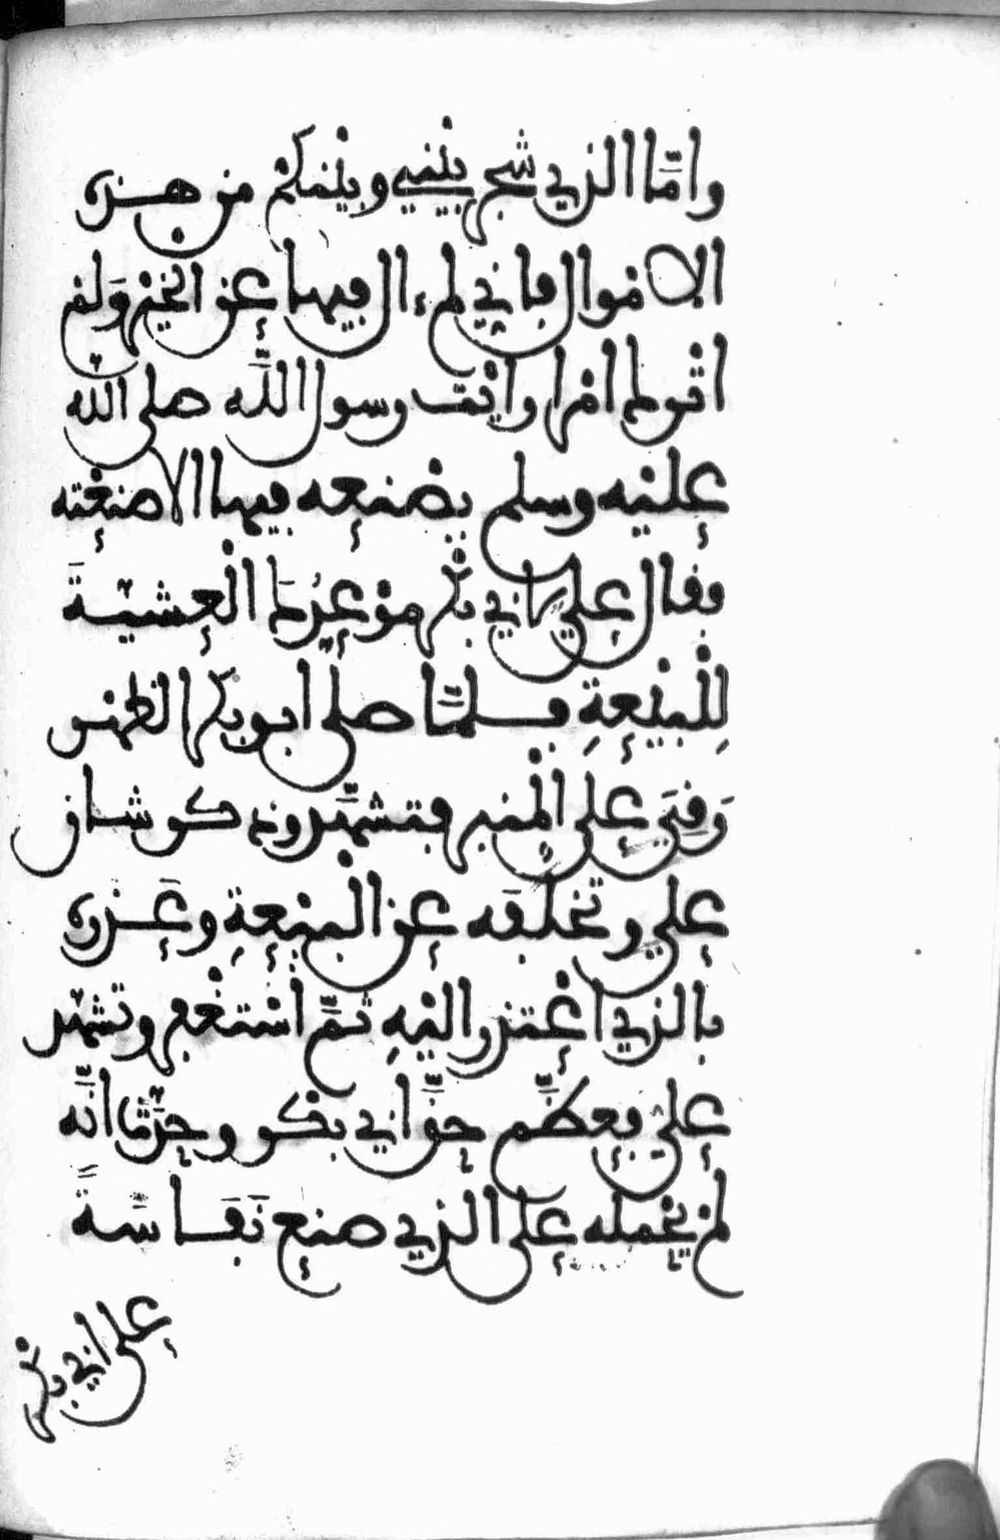 واما الذي شجر بيني وبينكم من هذه
الاموال فاني لم ءال فيها عن الخير ولم
اترك امرا رايت رسول الله صلى الله
عليه وسلم يصنعه فيها الا صنعته
فقال علي لابي بكر موعدك العشية
للبيعة فلما صلى ابو بكر الظهر
رقي على المنبر فتشهد وذكر شان
علي وتخلفه عن البيعة وعذره
بالذي اعتذر اليه ثم استغفر وتشهد
علي فعظم حق ابي بكر وحدث انه
لم يحمله على الذي صنع نفاسة
على ابي بكر